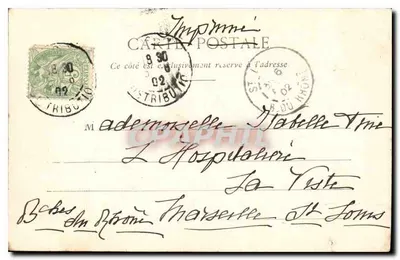 Imprimé
CARTE POSTALE
Ce côté est exclusivement réservé à l'adresse
8 30
02
DISTRIBUTION
8 30
02
DISTRIBUTION
6
02
DU RHONE
Mademoiselle Isabelle
L'Hospitalière
La Viste
Bches du Rhône Marseille St Louis